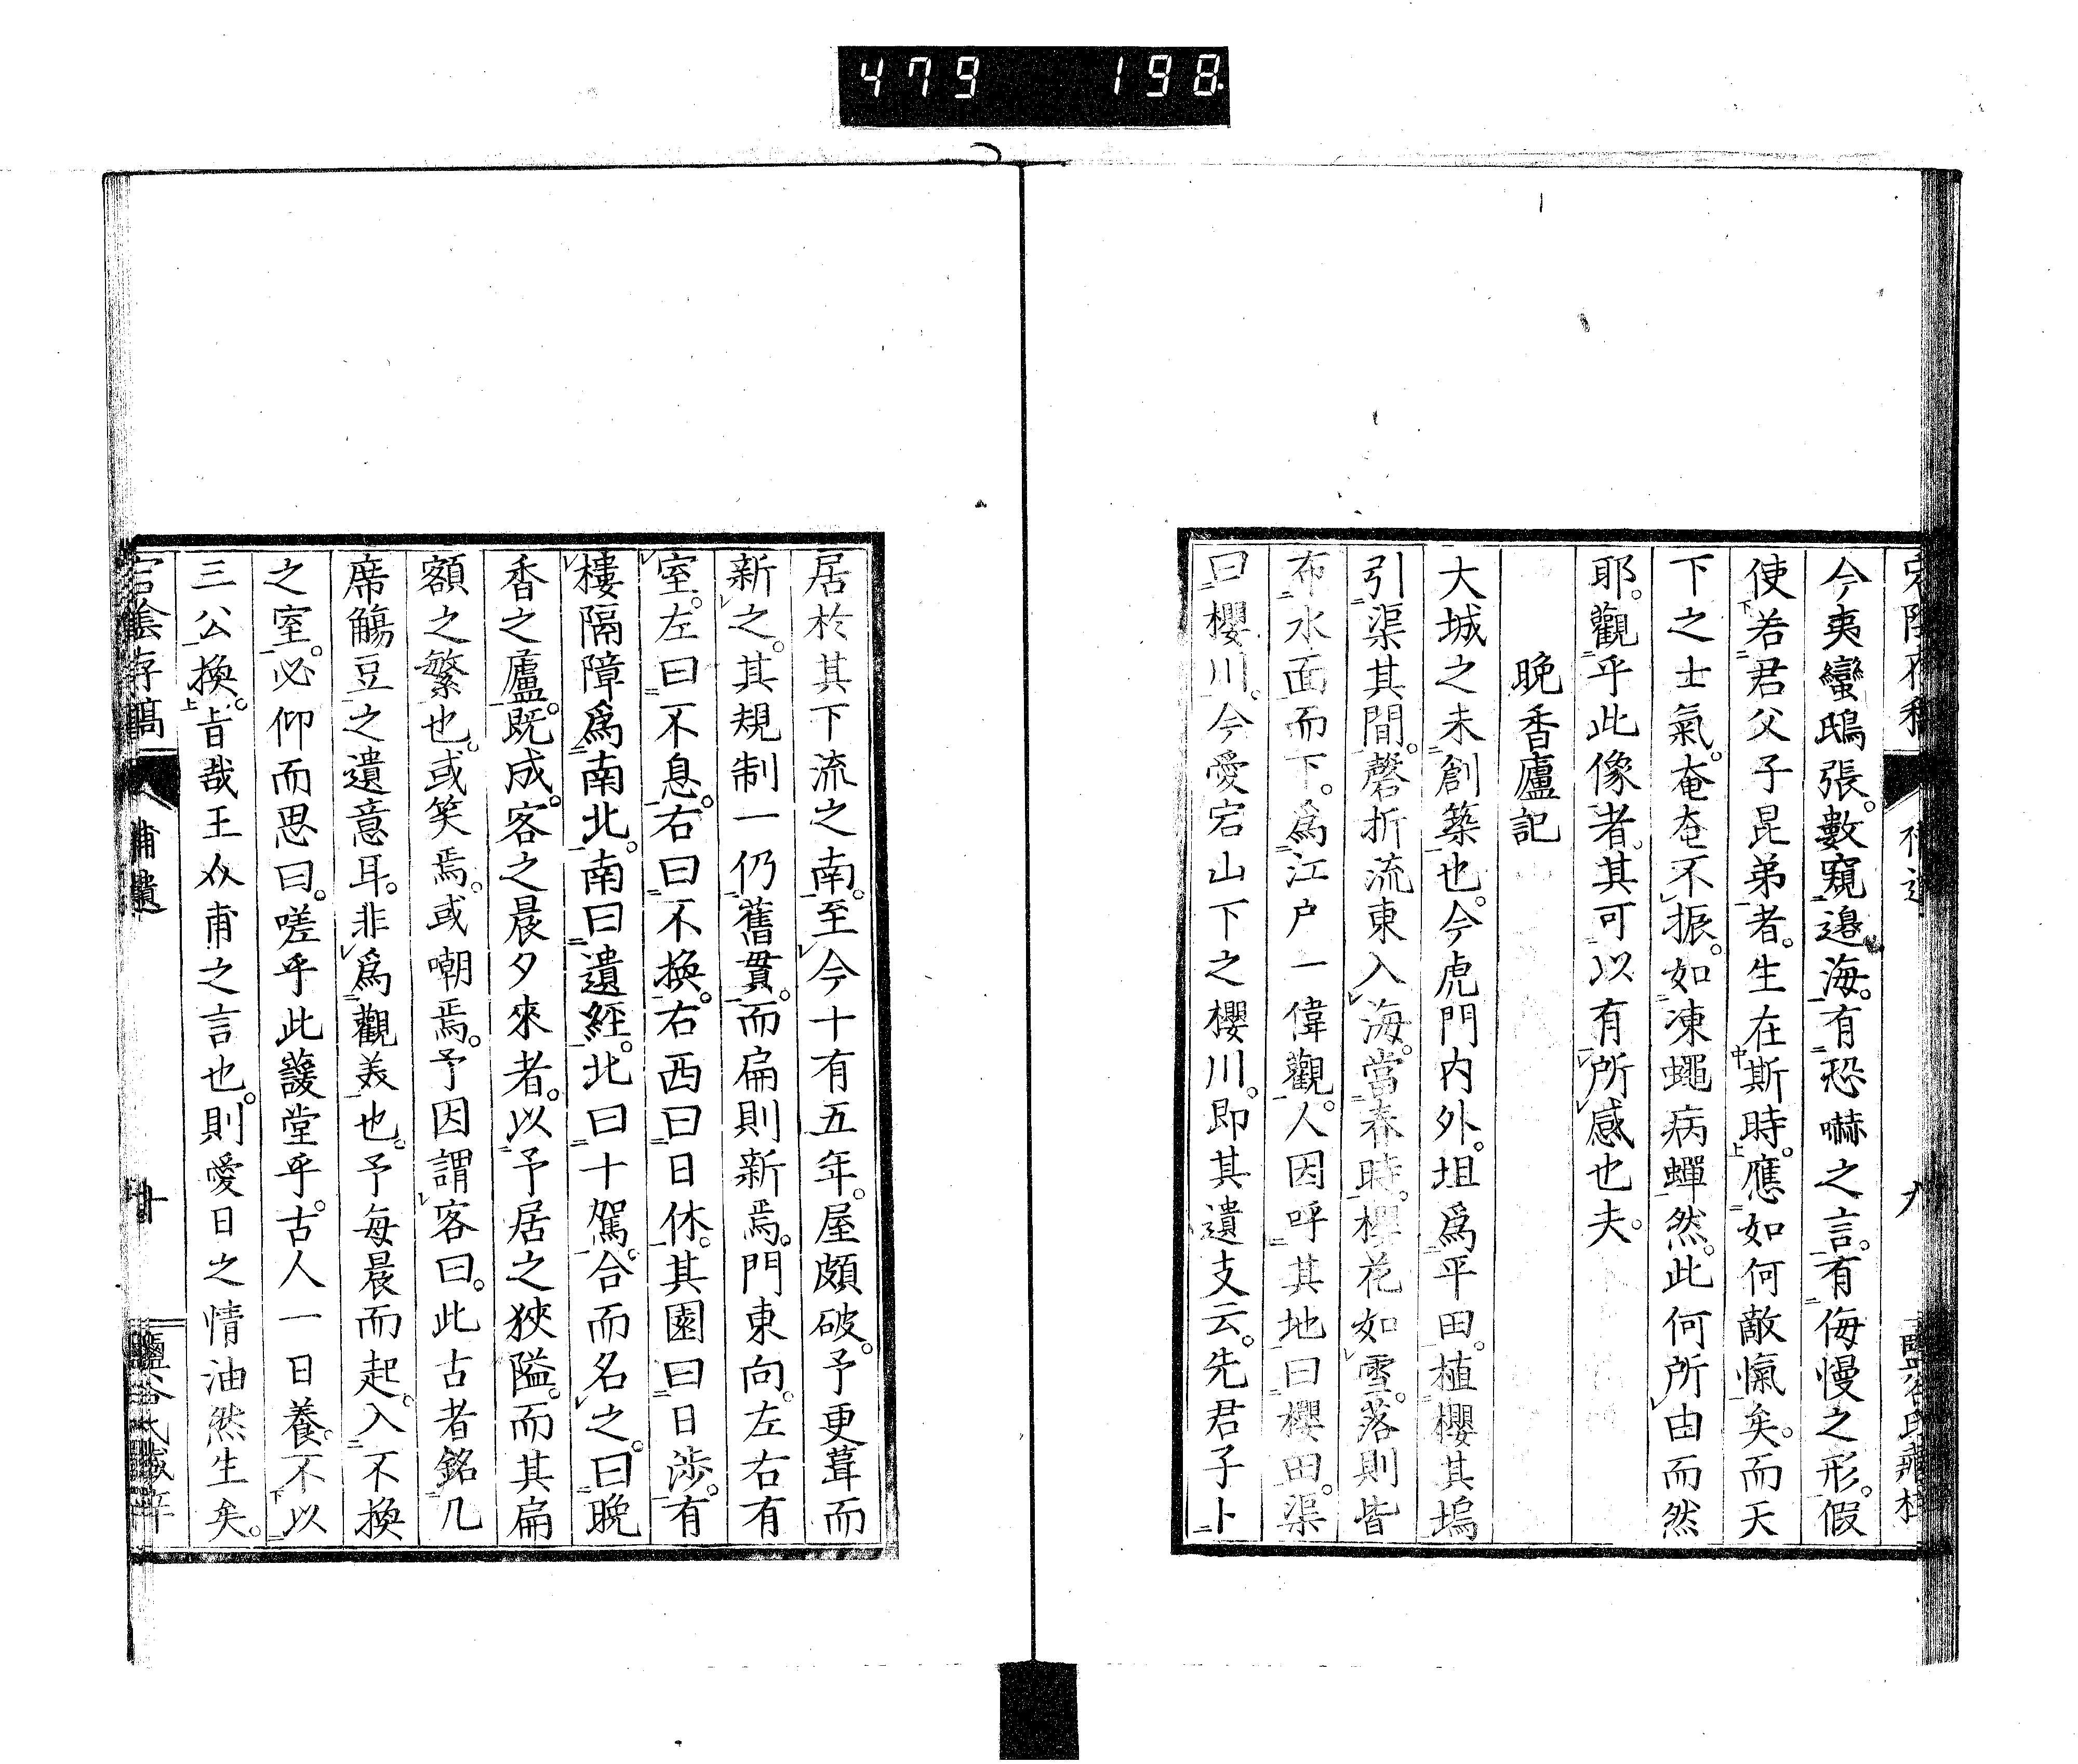 479 198
今夷蠻鴟張。數窺邊海。有恐嚇之言。有侮慢之形。假
使若君父子昆弟者。生在斯時。應如何敵愾矣。而天
下之士氣。奄奄不振。如凍蠅病蟬然。此何所由而然
耶。觀乎此像者。其可以有所感也夫。
晩香廬記
大城之未創築也。今虎門内外。坦爲平田。植櫻其塢
引渠其間。磬折流東入海。當春時。櫻花如雪。落則皆
布水面而下。爲江户一偉觀。人因呼其地曰櫻田。渠
曰櫻川。今愛宕山下之櫻川。即其遺支云。先君子卜
居於其下流之南。至今十有五年。屋頗破。予更葺而
新之。其規制一仍舊貫。而扁則新焉。門東向。左右有
室。左曰不息。右曰不換。右西曰日休。其園曰日涉。有
樓隔障爲南北。南曰遺經。北曰十駕。合而名之。曰晩
香之廬。既成。客之晨夕來者。以予居之狹隘。而其扁
額之繁也。或笑焉。或嘲焉。予因謂客曰。此古者銘几
席觴豆之遺意耳。非爲觀美也。予每晨而起。入不換
之室。必仰而思曰。嗟乎此蘐堂乎。古人一日養。不以
三公換。旨哉王介甫之言也。則愛日之情油然生矣。
宕陰存稿 補遺 十 鹽谷氏藏梓